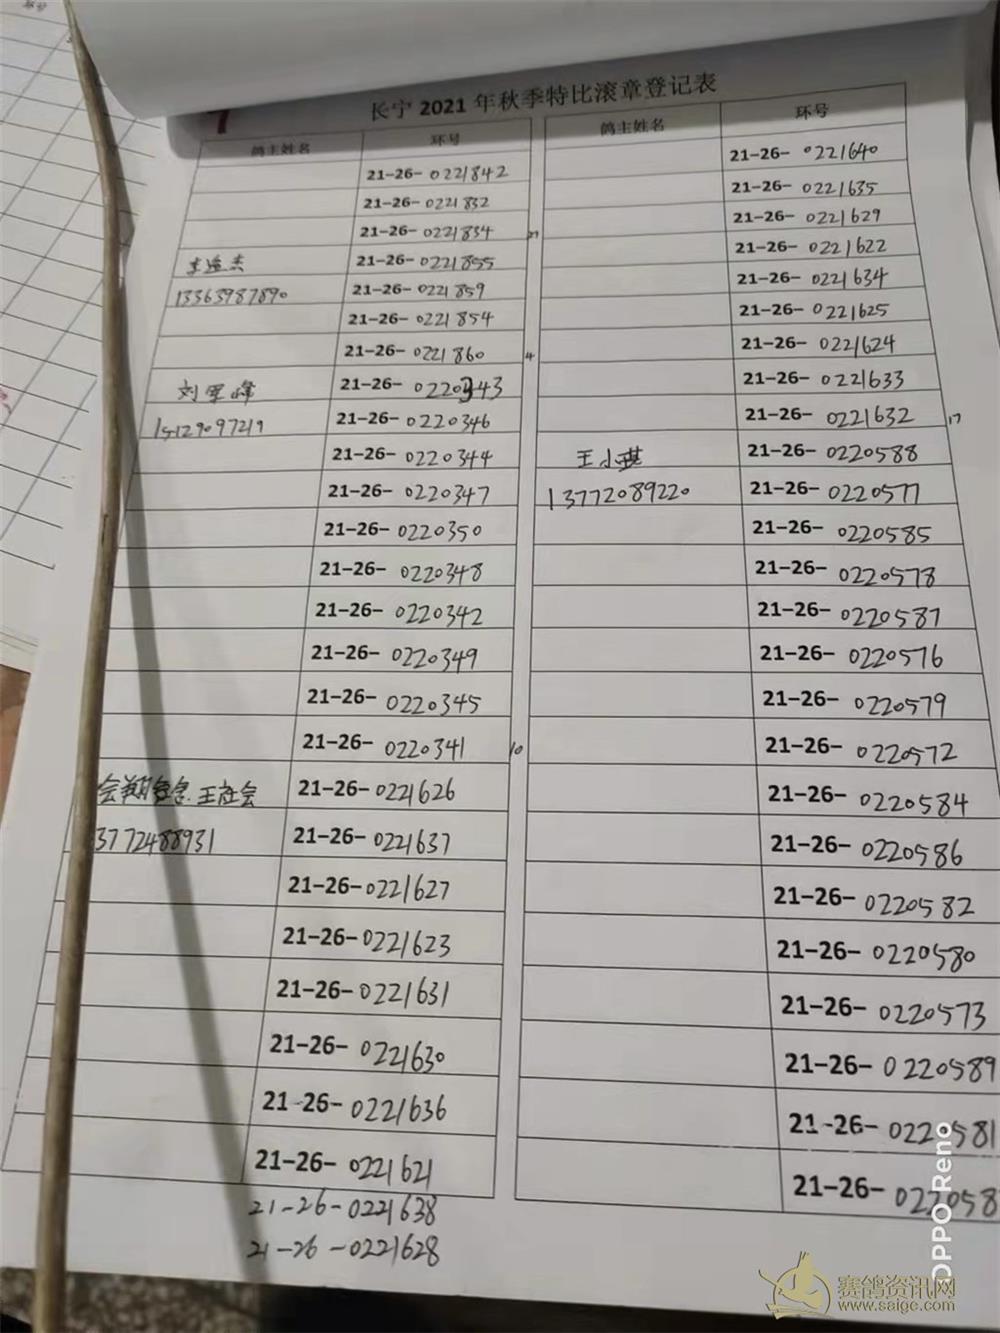 长宁 2021 年秋季特比滚章登记表
鸽主姓名 环号
21-26- 0221842
21-26- 0221832
21-26- 0221834
21-26- 0221855
13363987890 21-26- 0221859
21-26- 0221854
21-26- 0221860
刘军峰 21-26- 0220343
15129097219 21-26- 0220346
21-26- 0220344
21-26- 0220347
21-26- 0220350
21-26- 0220348
21-26- 0220342
21-26- 0220349
21-26- 0220345
21-26- 0220341 10
21-26- 0221626
3772488931 21-26- 0221637
21-26- 0221627
21-26- 0221623
21-26- 0221631
21-26- 0221630
21-26- 0221636
21-26- 0221621
21-26-0221638
21-26-0221628
鸽主姓名 环号
21-26- 0221640
21-26- 0221635
21-26- 0221629
21-26- 0221622
21-26- 0221634
21-26- 0221625
21-26- 0221624
21-26- 0221633
21-26- 0221632 17
王小琪 21-26- 0220588
13772089220 21-26- 0220577
21-26- 0220585
21-26- 0220578
21-26- 0220587
21-26- 0220576
21-26- 0220579
21-26- 0220572
21-26- 0220584
21-26- 0220586
21-26- 0220582
21-26- 0220580
21-26- 0220573
21-26- 0220589
21-26- 0220581
21-26- 022058
OPPO Reno
赛鸽资讯网
www.saige.com